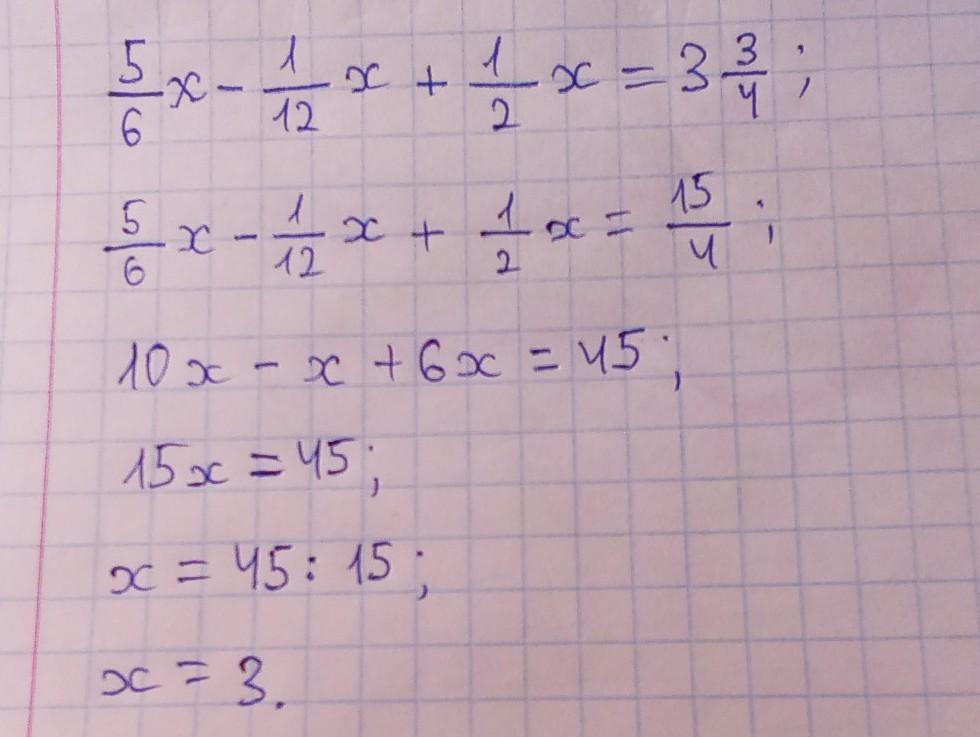 5/6 x - 1/12 x + 1/2 x = 3 3/4 ;
5/6 x - 1/12 x + 1/2 x = 15/4 ;
10x - x + 6x = 45 ;
15x = 45 ;
x = 45 : 15 ;
x = 3.